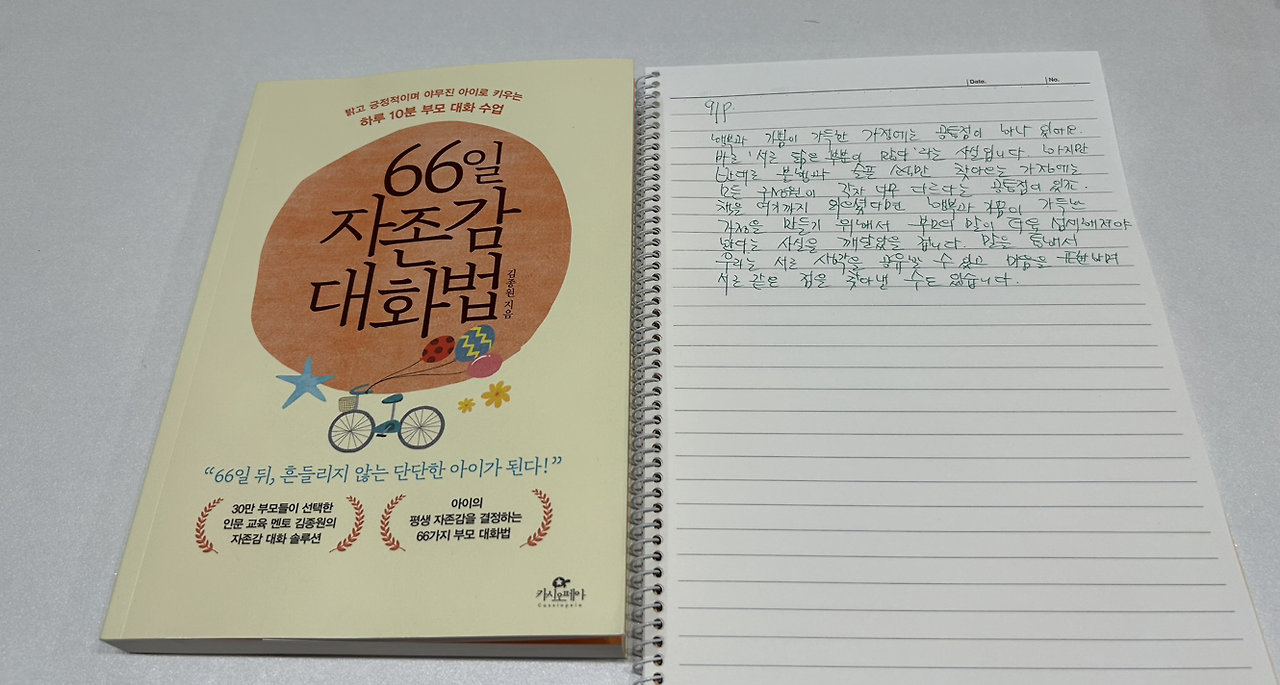 밝고 긍정적이며 야무진 아이로 키우는
하루 10분 부모 대화 수업
66일
자존감
대화법
김종원 지음
“66일 뒤, 흔들리지 않는 단단한 아이가 된다!”
30만 부모들이 선택한
인문 교육 멘토 김종원의
자존감 대화 솔루션
아이의
평생 자존감을 결정하는
66가지 부모 대화법
카시오페아
Cassiopeia
Date.
No.
91p.
행복과 기쁨이 가득한 가정에는 공통점이 하나 있어요.
바로 '서로 닮은 부분이 많다'라는 사실입니다. 하지만
반대로 불행과 슬픔 찾아오는 가정에는
모든 구성원이 각자 너무 다르다는 공통점이 있죠.
책을 여기까지 읽으셨다면 행복과 기쁨이 가득한
가정을 만들기 위해서 부모의 말이 더욱 섬세해져야
한다는 사실을 깨달았을 겁니다. 말을 통해서
우리는 서로 사랑을 공유할 수 있고 마음을 표현하며
서로 같은 점을 찾아낼 수도 있습니다.